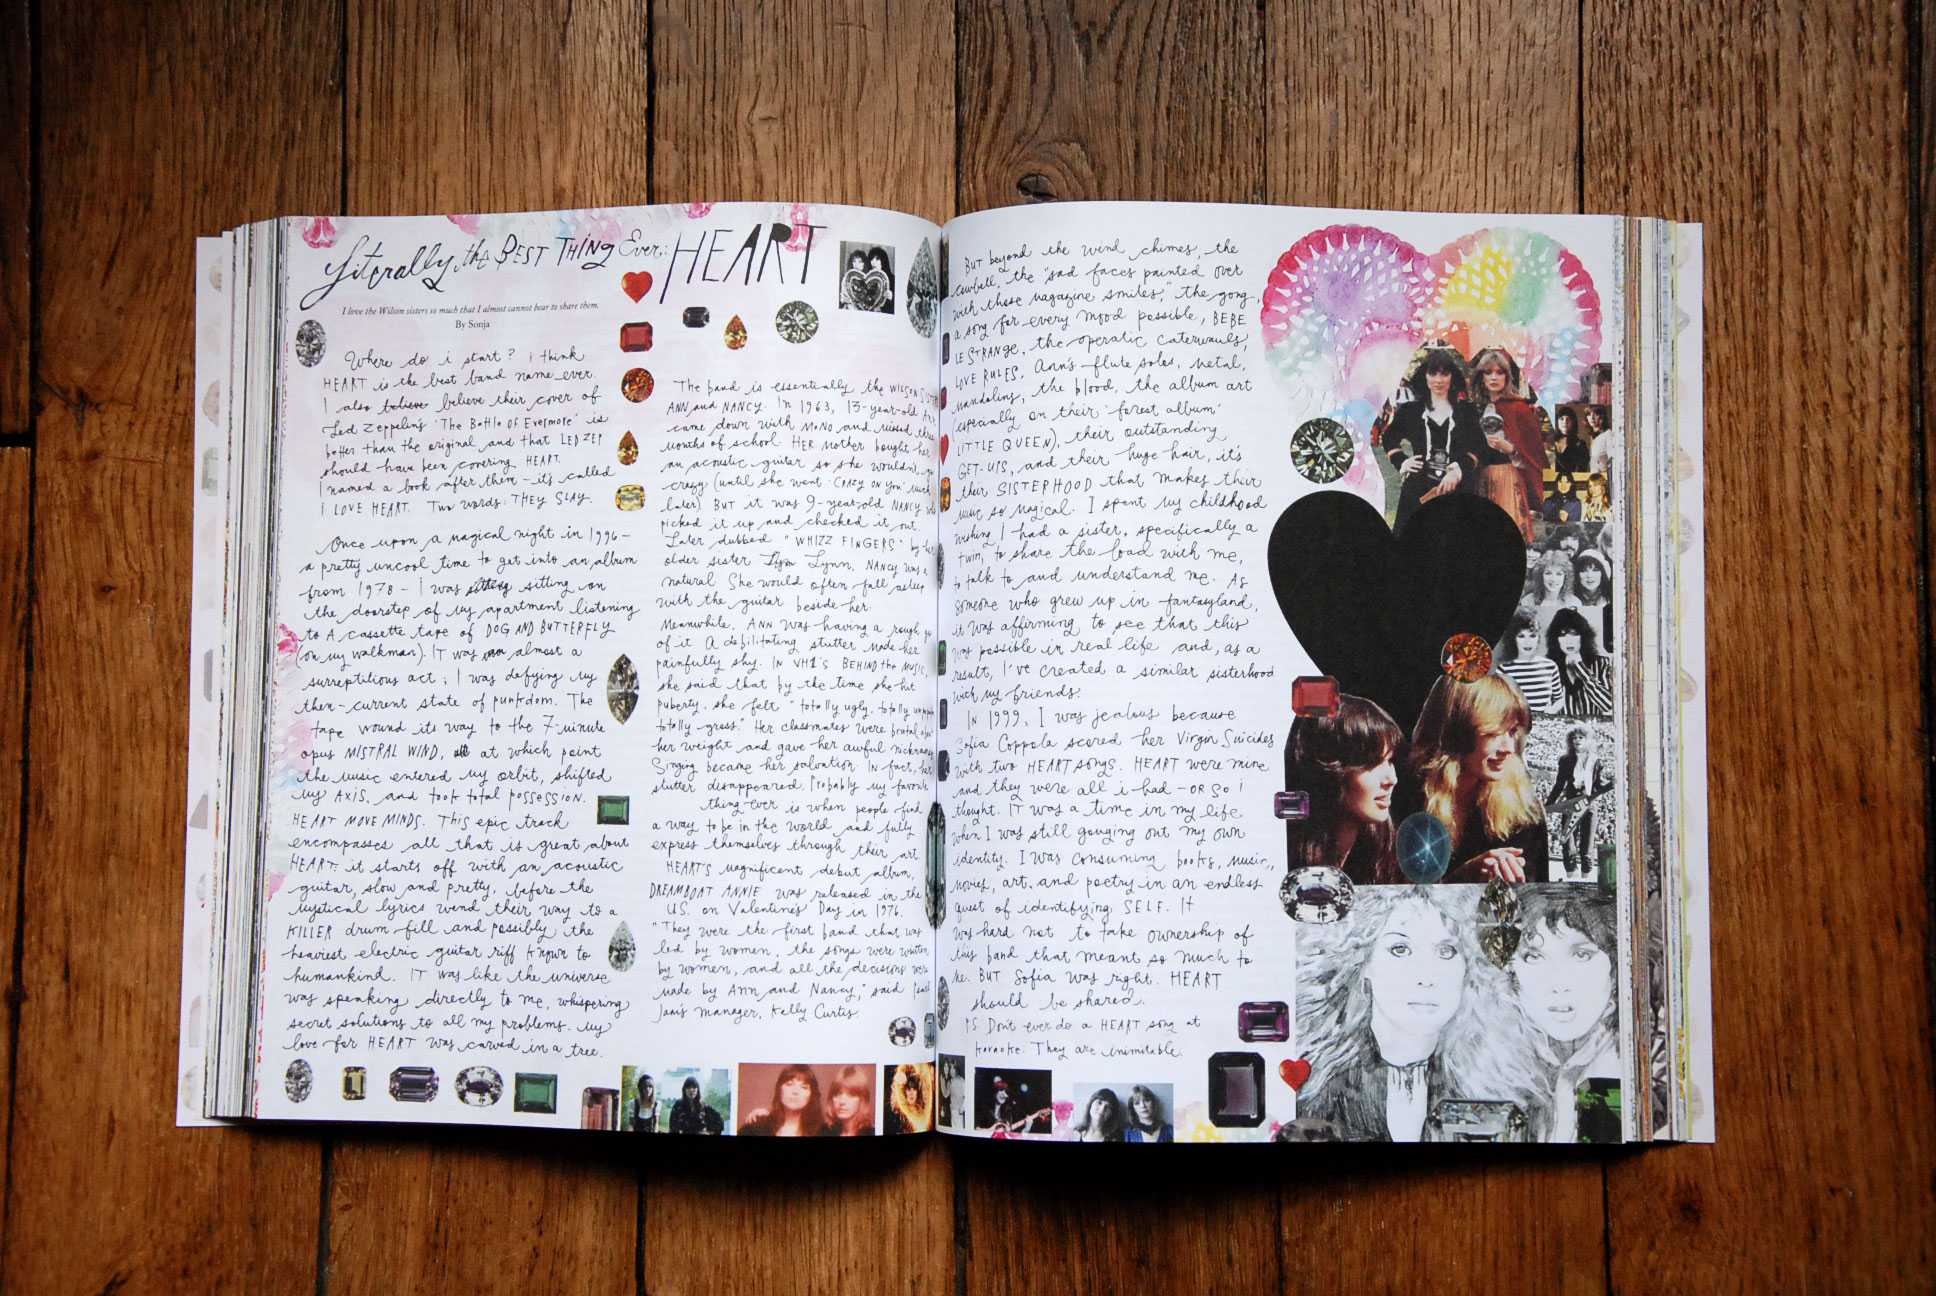 Literally the BEST THING Ever: HEART
I love the Wilson sisters so much that I almost cannot bear to share them.
By Sonja
Where do i start? i think
HEART is the best band name ever.
I also believe believe their cover of
Led Zeppelin's 'The Battle of Evermore' is
better than the original and that LED ZEP
should have been covering HEART.
I named a book after them - it's called
I LOVE HEART. Two words: THEY SLAY.
Once upon a magical night in 1996 -
a pretty uncool time to get into an album
from 1978 - I was sitting on
the doorstep of my apartment listening
to A cassette tape of DOG AND BUTTERFLY
(on my walkman). IT was almost a
surreptitious act; I was defying my
then-current state of punkdom. The
tape wound its way to the 7-minute
opus MISTRAL WIND, at which point
the music entered my orbit, shifted
my AXIS, and took total possession.
HEART MOVE MINDS. This epic track
encompasses all that is great about
HEART: it starts off with an acoustic
guitar, slow and pretty, before the
mystical lyrics wend their way to a
KILLER drum fill and possibly the
heaviest electric guitar riff known to
humankind. IT was like the universe
was speaking directly to me, whispering
secret solutions to all my problems. My
love for HEART was carved in a tree.
The band is essentially the WILSON
ANN and NANCY. In 1963, 13-year-old Ann
came down with MONO and missed three
months of school. HER mother bought her
an acoustic guitar so she wouldn't go
crazy (until she went 'CRAZY ON YOU' much
later). BUT it was 9-year-old NANCY who
picked it up and checked it out.
Later dubbed "WHIZZ FINGERS" by her
older sister Lynn, NANCY was a
natural She would often fall asleep
with the guitar beside her.
Meanwhile, ANN was having a rough go
of it A debilitating stutter made her
painfully shy. IN VH1'S BEHIND the MUSIC,
she said that by the time she hit
puberty, she felt "totally ugly, totally
totally gross." Her classmates were brutal about
her weight and gave her awful nicknames
Singing became her salvation IN fact, her
stutter disappeared. Probably my favorite
thing ever is when people find
a way to be in the world and fully
express themselves through their art.
HEART'S magnificent debut album,
DREAMBOAT ANNIE was released in the
U.S. on Valentine's Day in 1976.
"They were the first band that was
led by women, the songs were written
by women, and all the decisions were
made by Ann and Nancy," said
manager, Kelly Curtis.
BUT beyond the wind chimes, the
cowbell, the "sad faces painted over
with those magazine smiles," the gong,
a song for every mood possible, BEBE
LE STRANGE, the operatic caterwauls,
LOVE RULES, Ann's flute solos, metal,
mandolins, the blood, the album art
(especially on their 'forest album'
LITTLE QUEEN), their outstanding
GET-UPS, and their huge hair, it's
their SISTERHOOD that makes their
music so magical. I spent my childhood
wishing I had a sister, specifically a
twin, to share the load with me,
to talk to and understand me. As
someone who grew up in fantasyland,
it was affirming to see that this
was possible in real life and, as a
result, I've created a similar sisterhood
with my friends.
IN 1999, I was jealous because
Sofia Coppola scored her Virgin Suicides
with two HEART songs. HEART were mine
and they were all i had - OR SO I
thought. IT was a time in my life
when I was still gouging out my own
identity. I was consuming books, music,
movies, art, and poetry in an endless
quest of identifying SELF. It
was hard not to take ownership of
this band that meant so much to
me. BUT Sofia was right. HEART
should be shared.
PS Don't ever do a HEART song at
karaoke. They are inimitable.